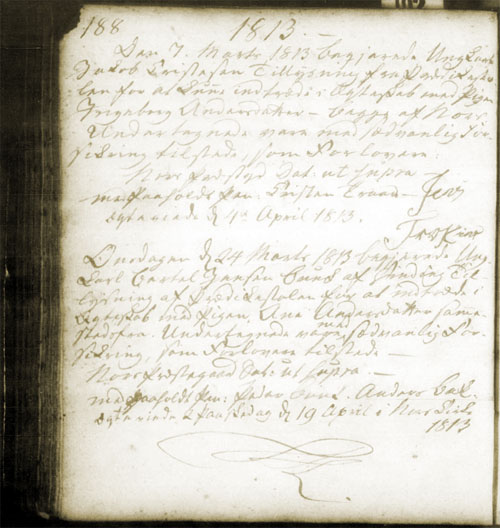 188 1813.
Den 7. Marts 1813 begjærede Ungkarl
Jakob Cristensen Tillysning fra Prædikesto-
len for at kunne indtræde i Ægteskab med Pigen
Ingeborg Andersdatter – begge af Nors.
Undertegnede vare med sædvanlig For-
sikring tilstede, som Forlovere.
Nors Præstegd Dat. ut supra –
med paaholdt Pen: Cristen
Ægteviede d. 4de April 1813.
Onsdagen d. 24 Marts 1813 begjærede Ung-
karl Bertel Jensen af Til-
lysning af Prædikestolen for at indtræde i
Ægteskab med Pigen, Ane Andersdatter samme-
stedsfra. Undertegnede vare med sædvanlig For-
sikring, som Forlovere tilstede –
Nors Præstegaard Dat: ut supra. –
med paaholdt Pen: Peder Anders
Ægteviede 2 Paaskedag d. 19 April i Nors Kirke
1813